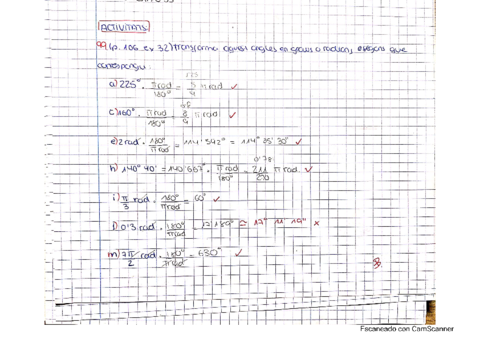 ACTIVITATS
99 (p. 106 ex 32) Transforma aquests angles en graus o radiants, segons que
correspongui
a) 225° · π rad / 180° = 5/4 π rad ✓
c) 160° · π rad / 180° = 8/9 π rad ✓
e) 2 rad · 180° / π rad = 114'592° = 114° 35' 30" ✓
h) 140° 40' = 140'667° · π rad / 180° = 211/250 π rad ✓
0'78
i) π/3 rad · 180° / π rad = 60° ✓
l) 0'3 rad · 180° / π rad = 17'189° ≅ 17° 11' 19" ×
m) 7π/2 rad · 180° / π rad = 630° ✓
Escaneado con CamScanner